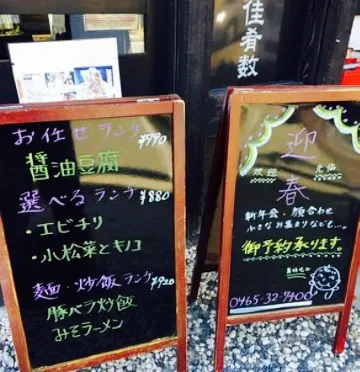 お任せランチ ¥790
醤油豆腐
選べるランチ ¥880
・エビチリ
・小松菜とキノコ
麺・炒飯ランチ ¥920
豚バラ炒飯
みそラーメン
佳肴数
迎
春
欢迎 光临
新年会・顔合わせ
小さなお集まりなども…
御予約承ります。
0465-32-7400